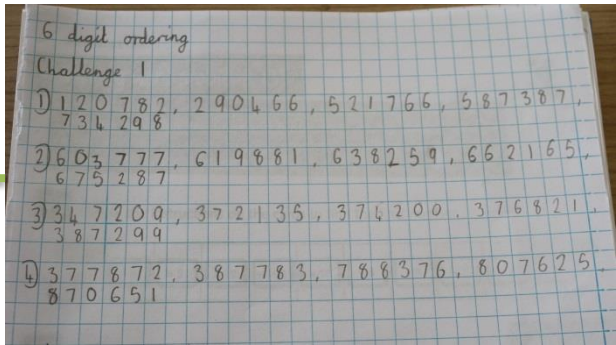 6 digit ordering
Challenge 1
1) 120782, 290466, 521766, 587387,
734298
2) 603777, 619881, 638259, 662165,
675287
3) 347209, 372135, 374200, 376821,
387299
4) 377872, 387783, 788376, 807625,
870651